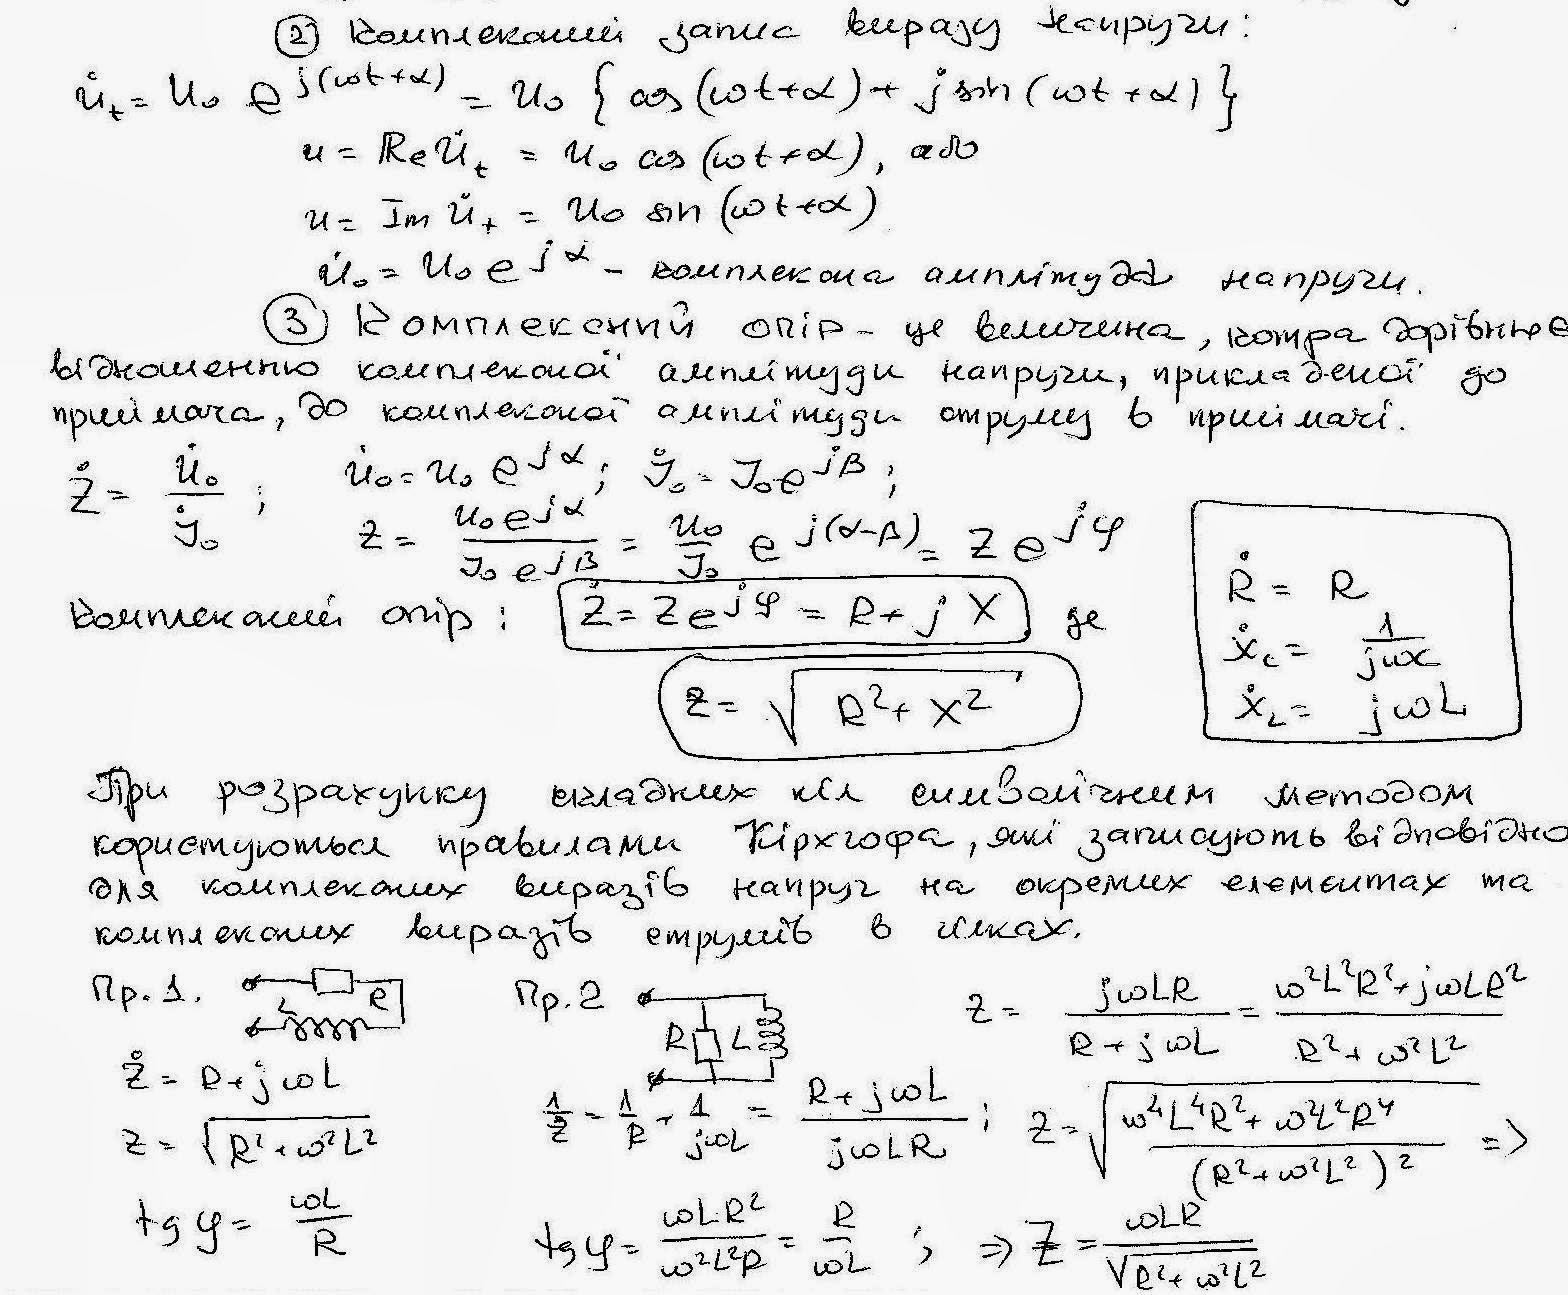 ② Комплексний запис виразу напруги:
u̇ₜ = U₀ e^{j(ωt+α)} = U₀ { cos(ωt+α) + j sin(ωt+α) }
u = Re U̇ₜ = U₀ cos(ωt+α), або
u = Im U̇ₜ = U₀ sin(ωt+α)
U̇₀ = U₀ e^{jα} – комплексна амплітуда напруги.
③ Комплексний опір – це величина, котра дорівнює
відношенню комплексної амплітуди напруги, прикладеної до
приймача, до комплексної амплітуди струму в приймачі.
Z̊ = U̇₀/J̊₀ ; U̇₀ = U₀ e^{jα} ; J̊₀ = J₀ e^{jβ} ;
Z = U₀e^{jα}/J₀e^{jβ} = U₀/J₀ e^{j(α-β)} = Z e^{jφ}
Комплексний опір : Ż = Z e^{jφ} = R + j X де
z = √(R² + X²)
R̊ = R
X̊_c = 1/jωc
X̊_L = jωL
При розрахунку складних кіл символічним методом
користуються правилами Кірхгофа, які записують відповідно
для комплексних виразів напруг на окремих елементах та
комплексних виразів струмів в гілках.
Пр. 1.
R
L
Z̊ = R + jωL
Z = √(R² + ω²L²)
tg φ = ωL/R
Пр. 2
R L
1/Z = 1/R + 1/jωL = (R + jωL)/jωLR ;
tg φ = ωLR²/ω²L²R = R/ωL ;
Z = jωLR/(R + jωL) = (ω²L²R + jωLR²)/(R² + ω²L²)
Z = √((ω⁴L⁴R² + ω²L²R⁴)/(R² + ω²L²)²) =>
=> Z = ωLR/√(R² + ω²L²)